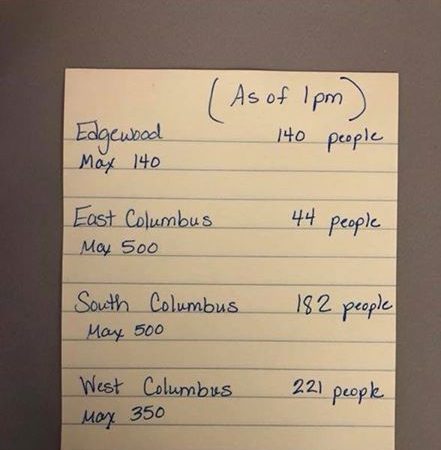 (As of 1pm)
Edgewood 140 people
Max 140
East Columbus 44 people
Max 500
South Columbus 182 people
Max 500
West Columbus 221 people
Max 350